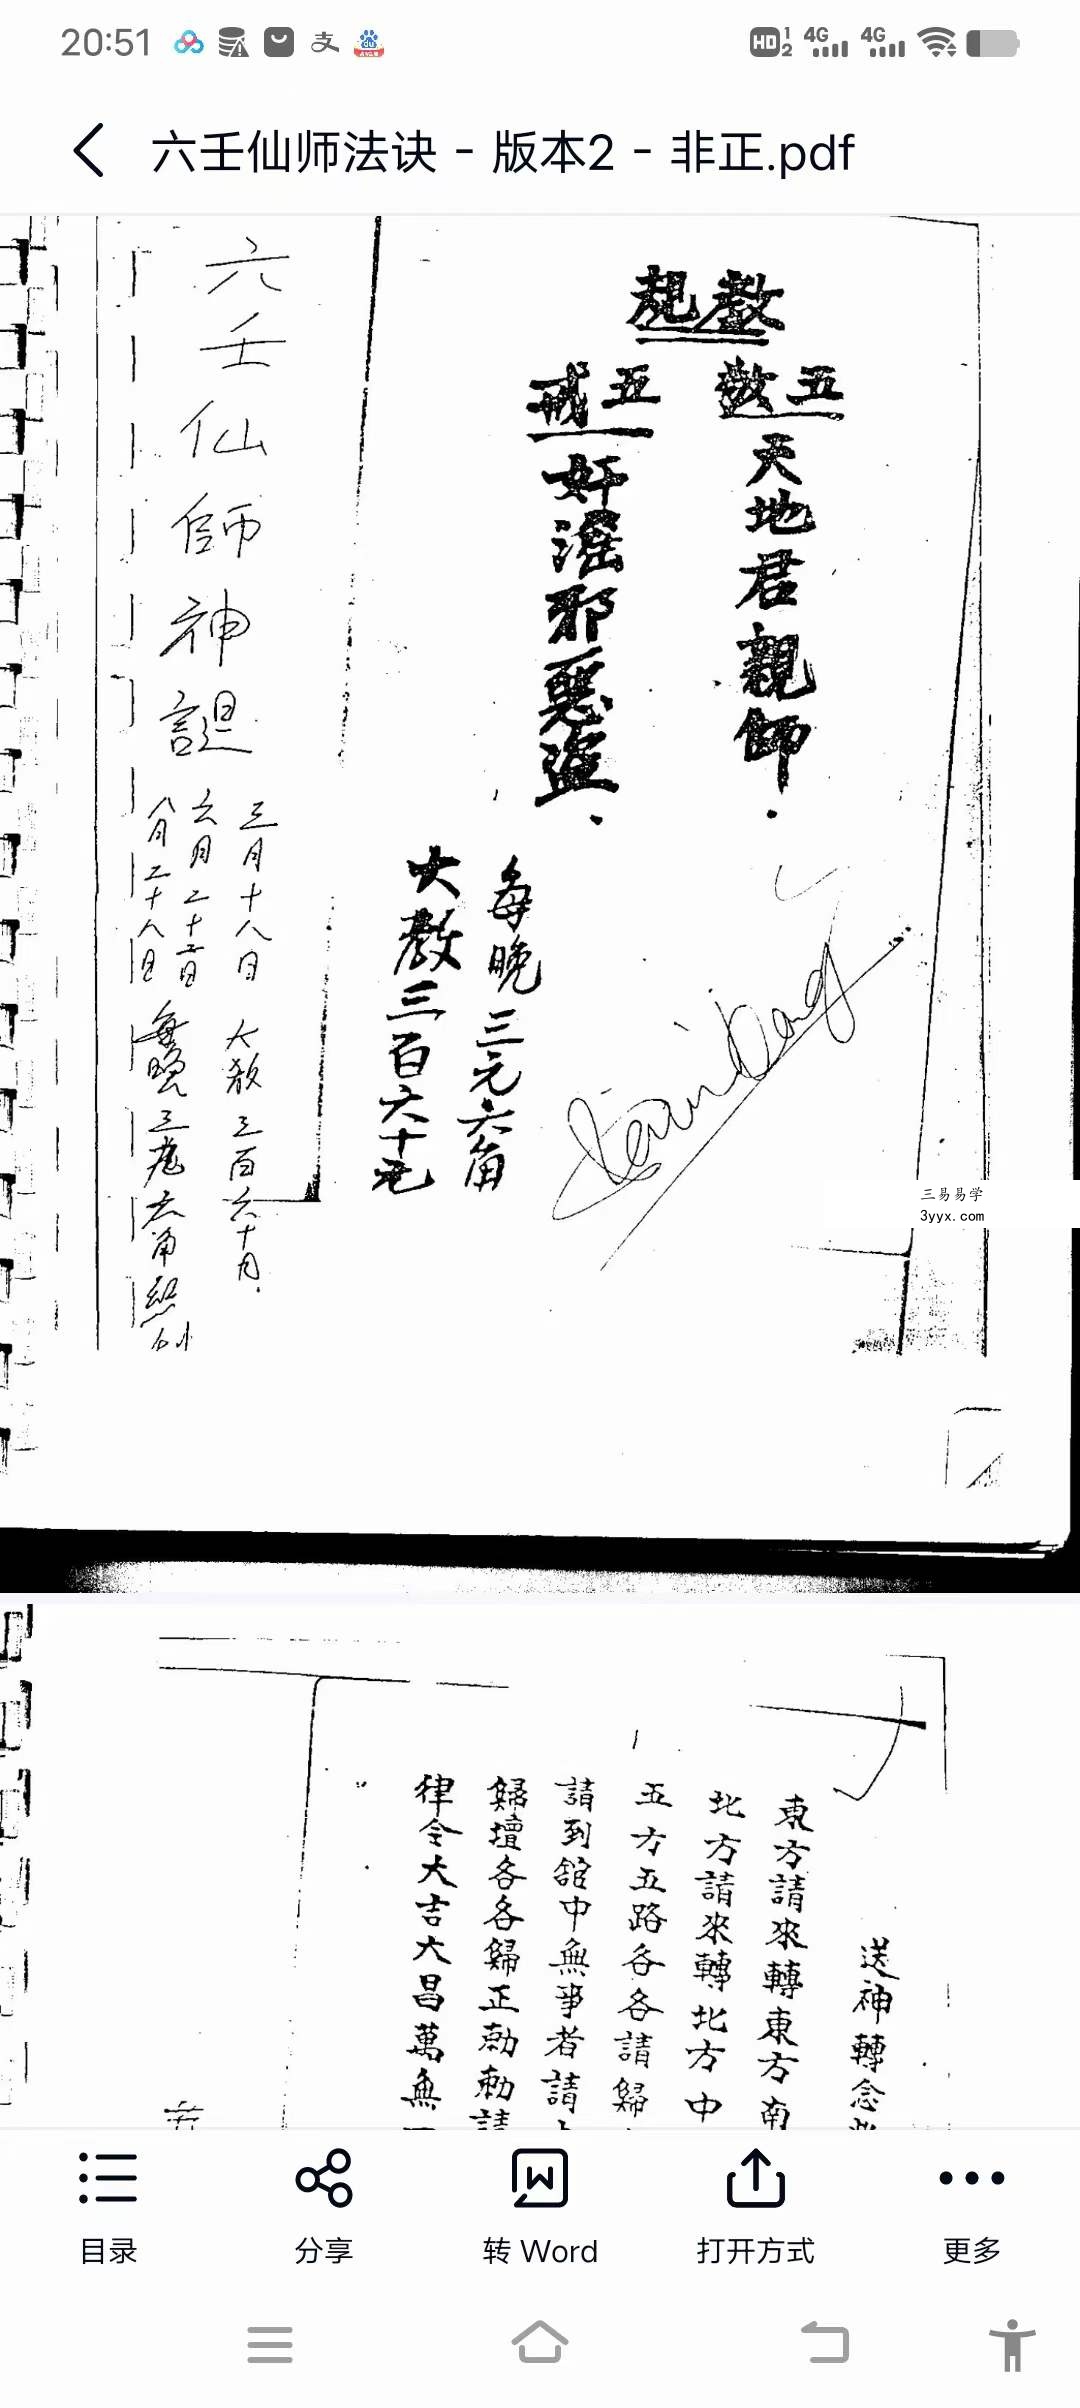 20:51
HD 1 2 4G 4G
六壬仙师法诀 - 版本2 - 非正.pdf
教規
五敬
天地君親師.
五戒
奸滛邪惡盗.
每晚三元六角
大教三百六十元
六壬仙師神誕
三月十八日
六月二十二日
八月二十八日
大教三百六十
每晚三
六角
三易易学
3yyx.com
送神轉念
東方請來轉東方南
北方請來轉北方中
五方五路各各請歸
請到舘中無事者請
歸壇各各歸正勅勅請
律令大吉大昌萬無
目录
分享
转 Word
打开方式
更多